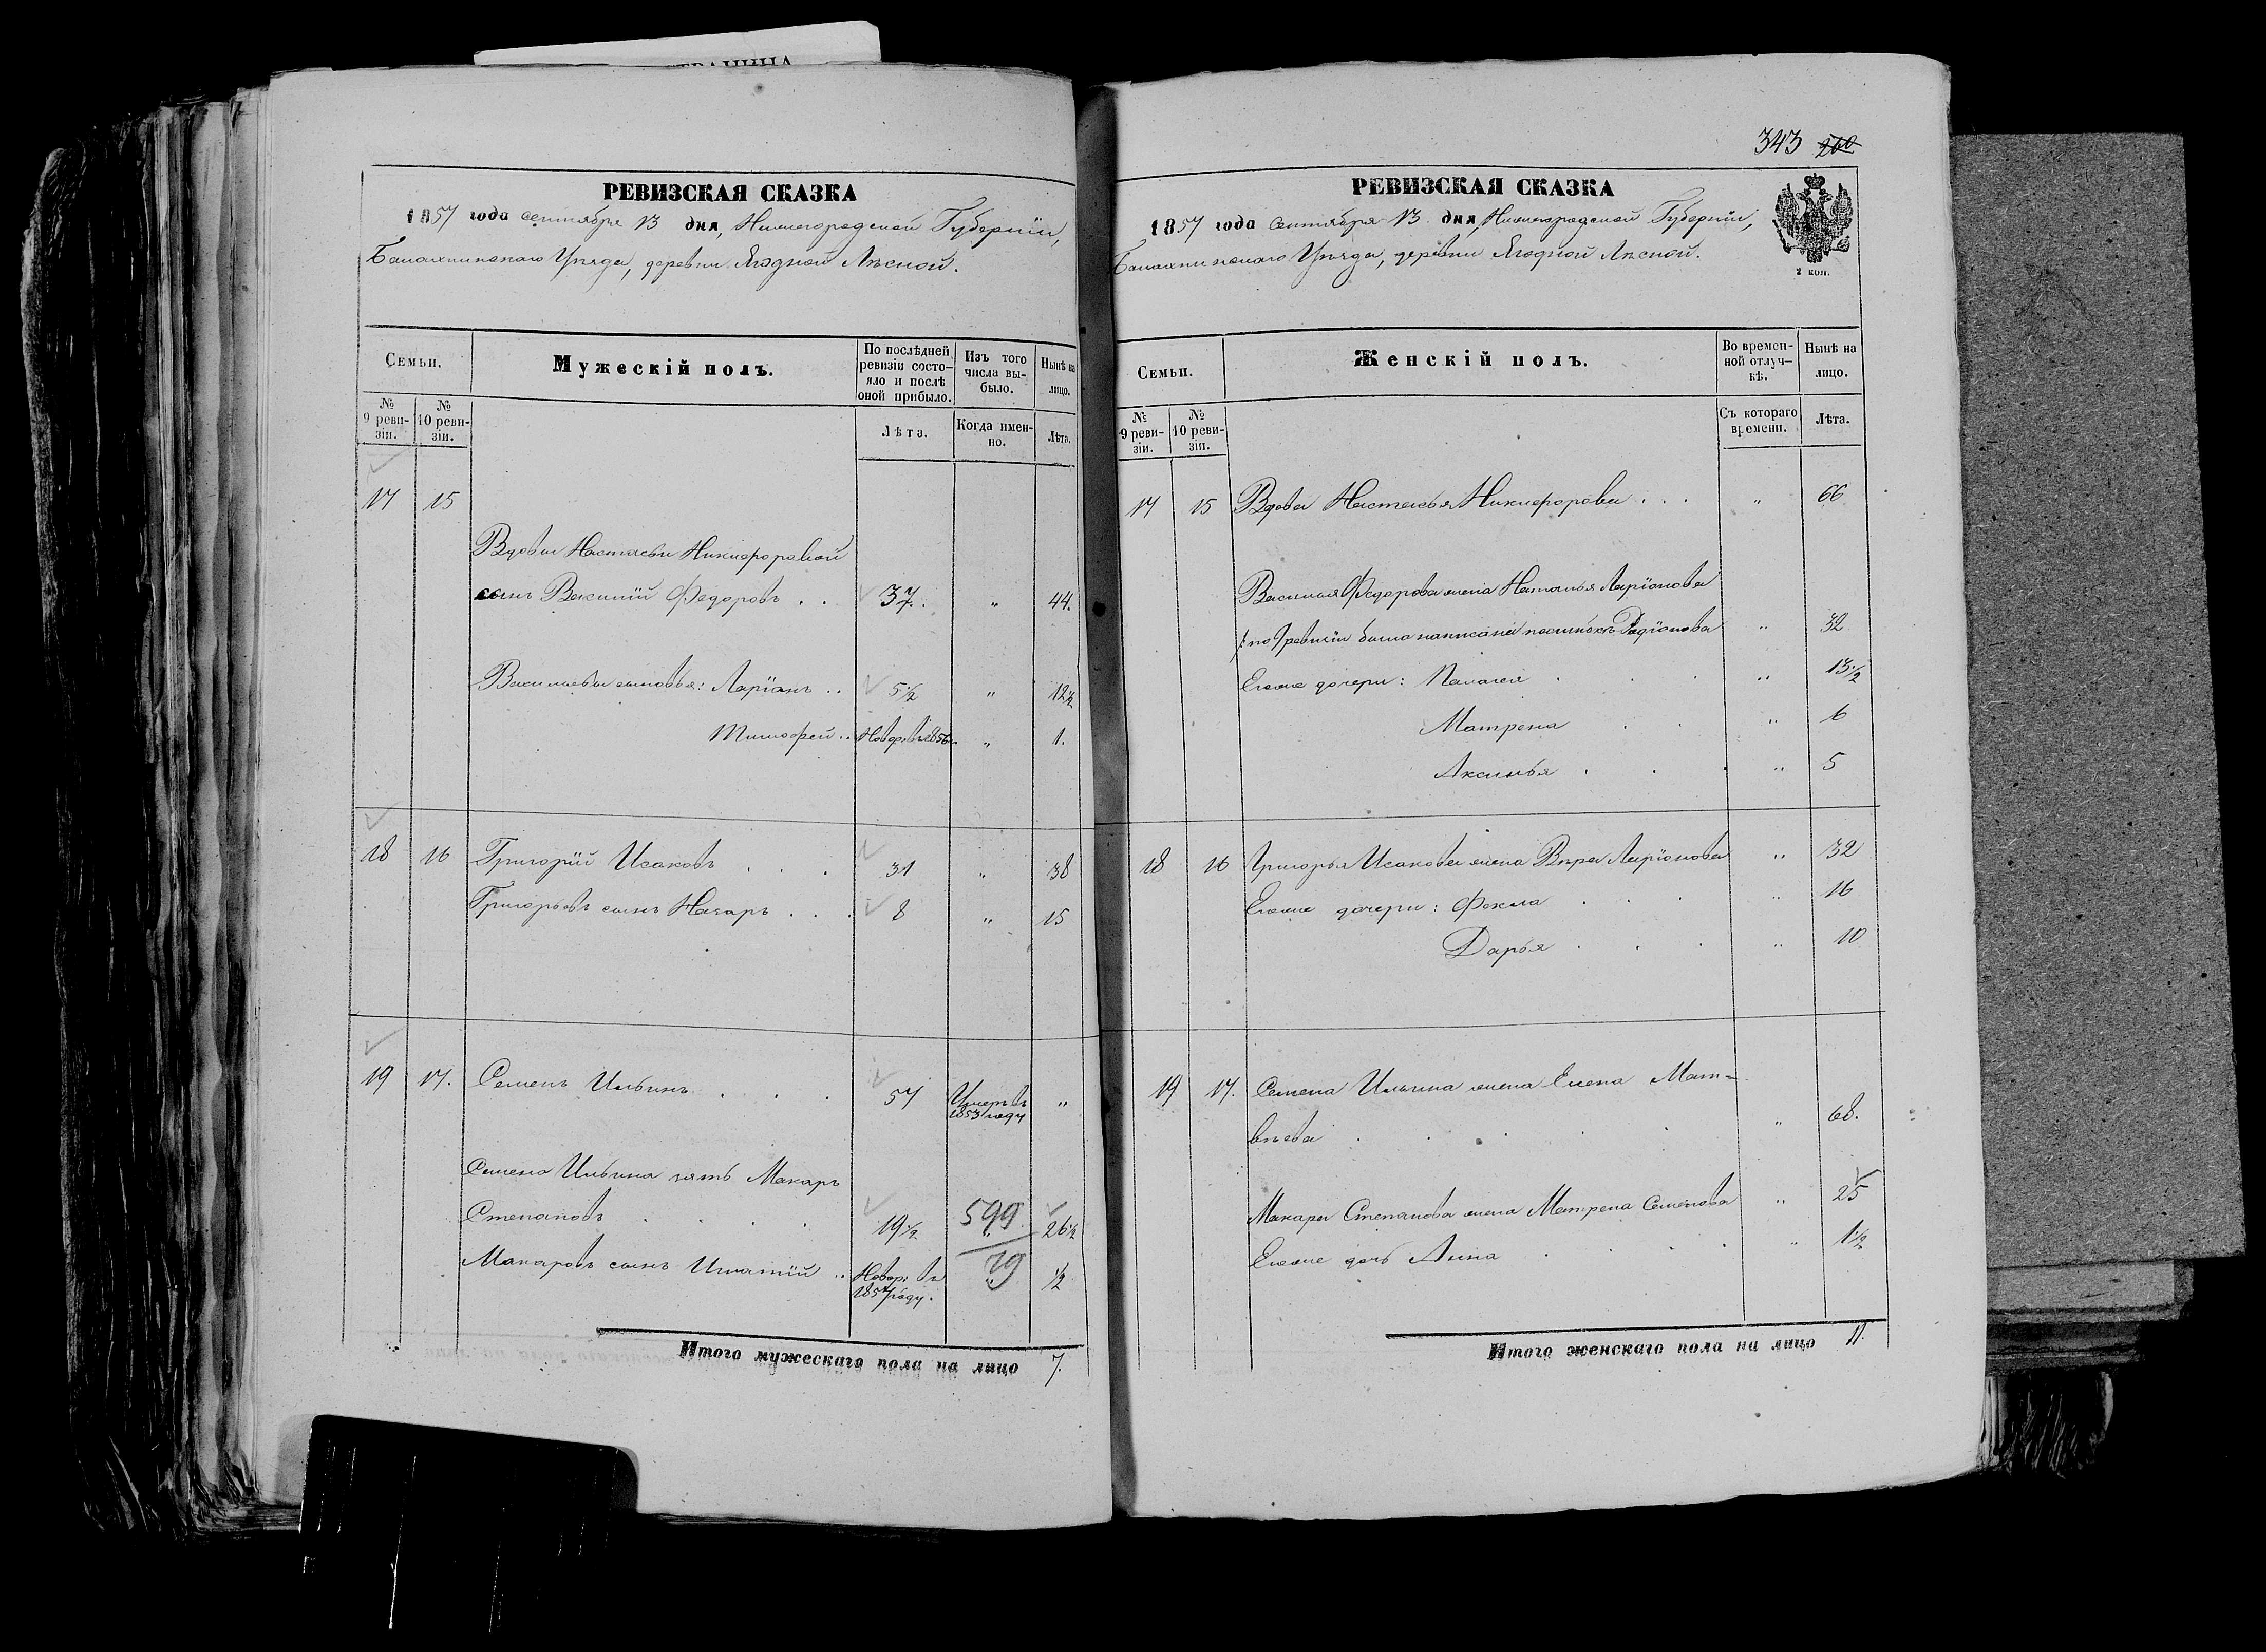 СТРАНИЦА
РЕВИЗСКАЯ СКАЗКА
1857 года сентября 13 дня, Нижегородской Губерніи,
Балахнинскаго Уѣзда, деревни Ягодной Лѣсной.
Семьи.
Мужескій полъ.
По послѣдней ревизіи состояло и послѣ оной прибыло.
Изъ того числа выбыло.
Нынѣ на лицо.
№ 9 ревизіи.
№ 10 ревизіи.
Лѣта.
Когда именно.
Лѣта.
17 15
Вдовы Настасьи Никифоровой
сынъ Василій Федоровъ . . 37. " 44.
Васильевы сыновья: Ларіонъ .. 5½ " 12½
Тимофей .. Новор. въ 1856 " 1.
18 16 Григорій Исаковъ . . . 31 " 38
Григорьевъ сынъ Назаръ . . . 8 " 15
19 17. Семенъ Ильинъ . . . 57 Умеръ въ 1853 году "
Семена Ильина зять Макаръ
Степановъ . . . . 19½ " 26½
599
19
Макаровъ сынъ Игнатій .. Новор. въ 1857 году. " ½
Итого мужескаго пола на лицо 7.
343 260
РЕВИЗСКАЯ СКАЗКА
1857 года сентября 13 дня, Нижегородской Губерніи,
Балахнинскаго Уѣзда, деревни Ягодной Лѣсной.
2 коп.
Семьи.
Женскій полъ.
Во временной отлучкѣ.
Нынѣ на лицо.
№ 9 ревизіи.
№ 10 ревизіи.
Съ котораго времени.
Лѣта.
17 15 Вдова Настасья Никифорова . . . " 66
Василья Федорова жена Наталья Ларіонова
/:по 9 ревизіи была написана Радіонова " 32
Ихже дочери: Палагея . . . " 13½
Матрена . . " 6
Аксинья . . . " 5
18 16 Григорья Исакова жена Вѣра Ларіонова " 32
Ихже дочери: Фекла . . . " 16
Дарья . . . " 10
19 17. Семена Ильина жена Елена Мат=
вѣева . . . . . " 68.
Макара Степанова жена Матрена Семенова " 25
Ихже дочь Анна . . . . " 1½
Итого женскаго пола на лицо 11.